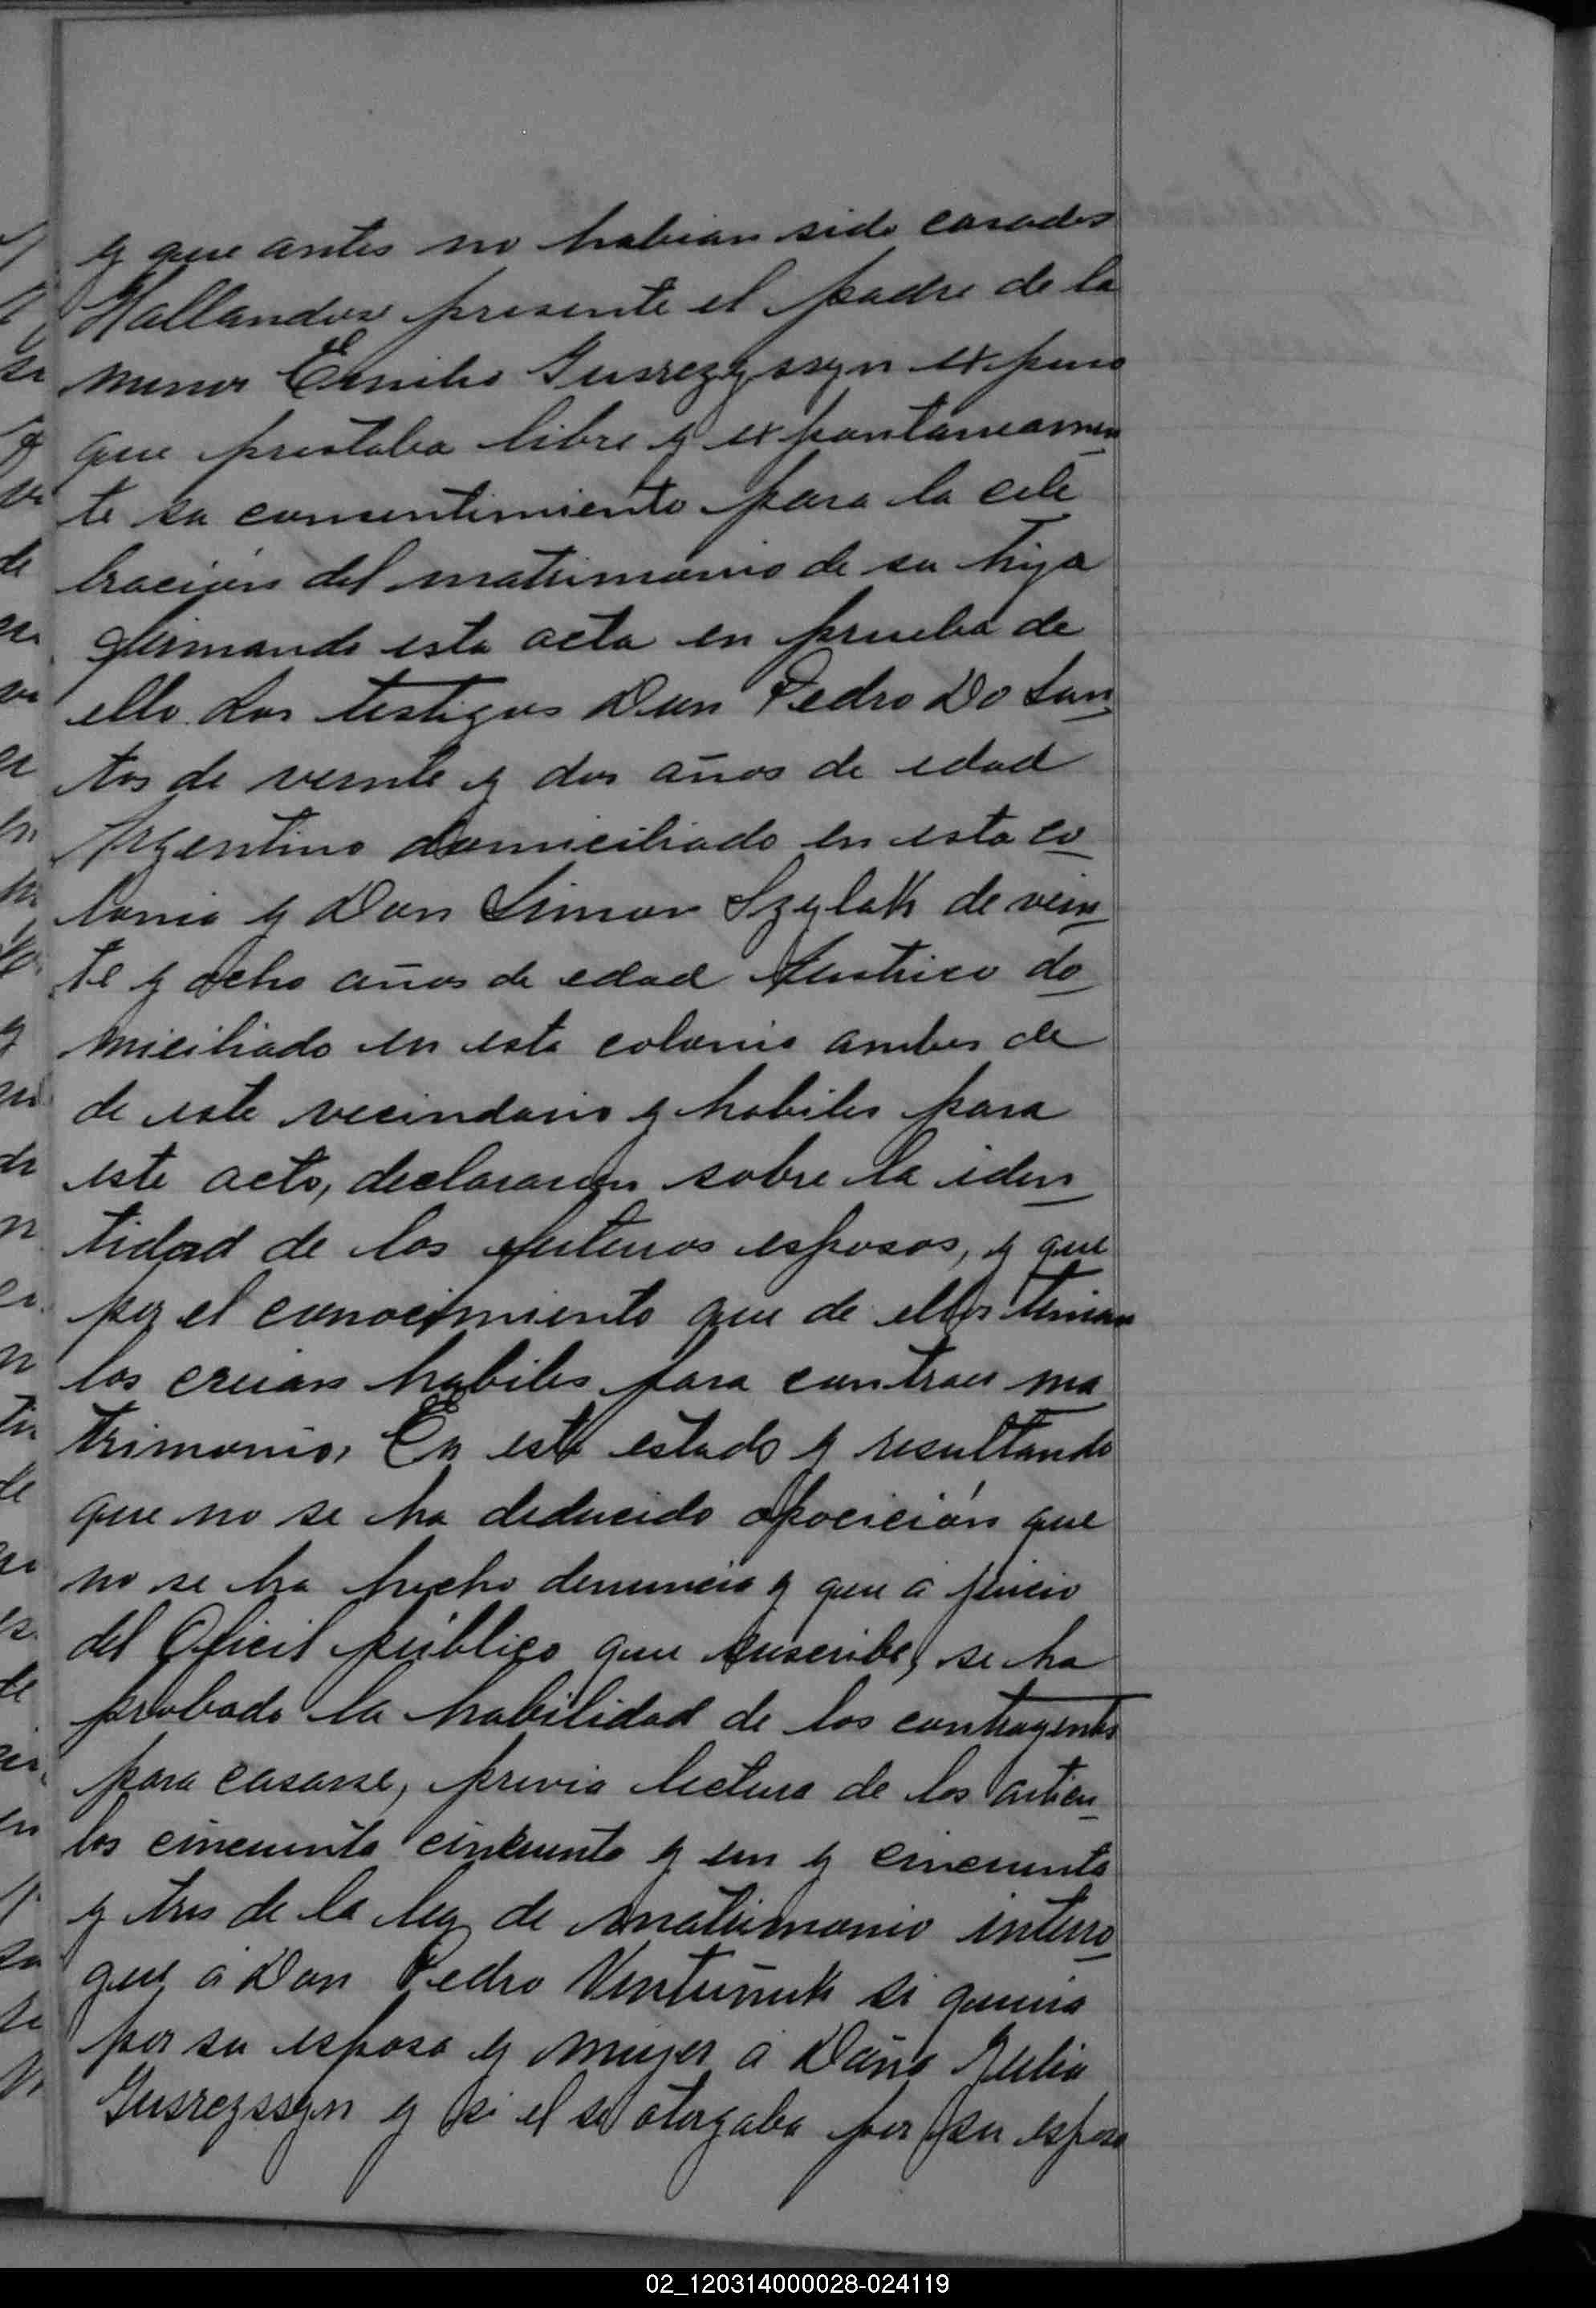 y que antes no habian sido casados
Hallandose presente el padre de la
menor Emilio Gusrezyssyn expuso
que prestaba libre y expontaneamen
te su consentimiento para la cele
bración del matrimonio de su hija
firmando esta acta en prueba de
ello. Los testigos Don Pedro Do San
tos de veinte y dos años de edad
Argentino domiciliado en esta co
lonia y Don Simon Szylak de vein
te y ocho años de edad Austrico do
miciliado en esta colonia ambos de
de este vecindario y habiles para
este acto, declararon sobre la iden
tidad de los futuros esposos, y que
por el conocimiento que de ellos tenian
los creian habiles para contraer ma
trimonio. En este estado y resultando
que no se ha deducido oposición que
no se ha hecho denuncia y que a juicio
del Oficil público que suscribe, se ha
probado la habilidad de los contrayentes
para casarse, previa lectura de los articu
los cincuenta cincuenta y un y cincuenta
y tres de la ley de matrimonio interro
gué á Don Pedro si queria
por su esposa y mujer á Doña Julia
Gusrezssyn y si el se otorgaba por su esposo
02_120314000028-024119